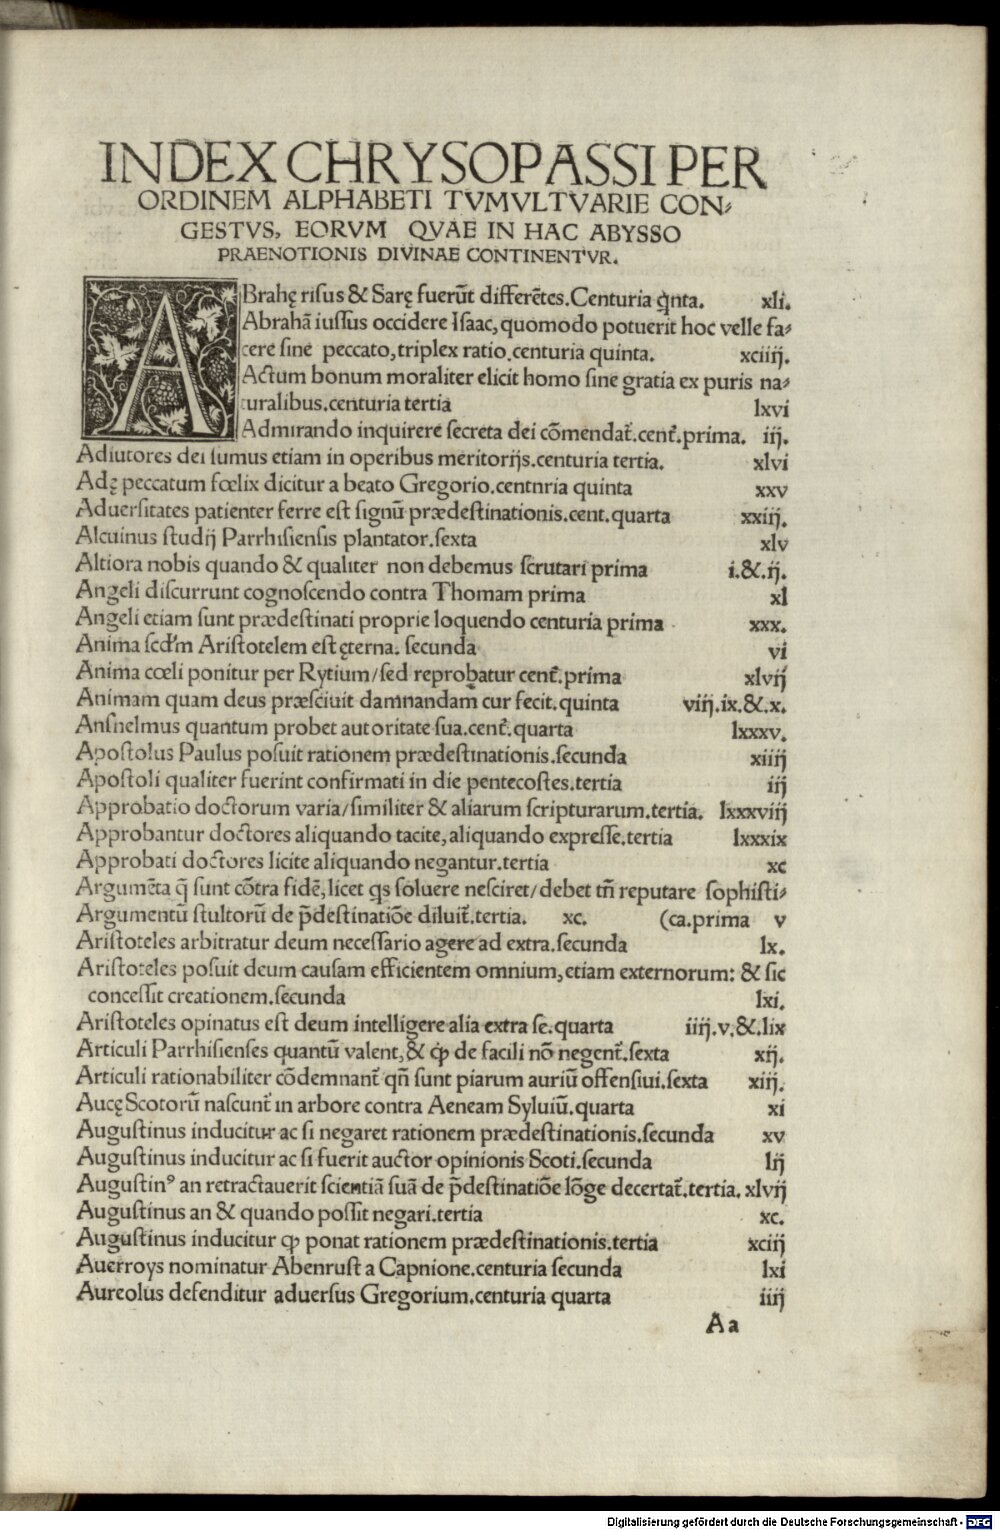 INDEX CHRYSOPASSI PER
ORDINEM ALPHABETI TVMVLTVARIE CON⸗
GESTVS, EORVM QVAE IN HAC ABYSSO
PRAENOTIONIS DIVINAE CONTINENTVR.
ABrahę risus & Sarę fuerūt differētes.Centuria q̇nta. xli.
Abrahā iussus occidere Isaac, quomodo potuerit hoc velle fa⸗
cere sine peccato, triplex ratio.centuria quinta. xciiij.
Actum bonum moraliter elicit homo sine gratia ex puris na⸗
turalibus.centuria tertia lxvi
Admirando inquirere secreta dei cōmendat̃.cent̃.prima. iij.
Adiutores dei sumus etiam in operibus meritorijs.centuria tertia. xlvi
Adę peccatum fœlix dicitur a beato Gregorio.centnria quinta xxv
Aduersitates patienter ferre est signū prædestinationis.cent.quarta xxiij.
Alcuinus studij Parrhisiensis plantator.sexta xlv
Altiora nobis quando & qualiter non debemus scrutari prima i.&.ij.
Angeli discurrunt cognoscendo contra Thomam prima xl
Angeli etiam sunt prædestinati proprie loquendo centuria prima xxx.
Anima scd'm Aristotelem est ęterna. secunda vi
Anima cœli ponitur per Rytium/sed reprobatur cent̃.prima xlvij
Animam quam deus præsciuit damnandam cur fecit.quinta viij.ix.&.x.
Anshelmus quantum probet autoritate sua.cent̃.quarta lxxxv.
Apostolus Paulus posuit rationem prædestinationis.secunda xiiij
Apostoli qualiter fuerint confirmati in die pentecostes.tertia iij
Approbatio doctorum varia/similiter & aliarum scripturarum.tertia. lxxxviij
Approbantur doctores aliquando tacite, aliquando expresse.tertia lxxxix
Approbati doctores licite aliquando negantur.tertia xc
Argumēta q̄ sunt cōtra fidē, licet qs soluere nesciret/debet tñ reputare sophisti⸗
Argumentū stultorū de p̄destinatiōe diluit̃.tertia. xc. (ca.prima v
Aristoteles arbitratur deum necessario agere ad extra.secunda lx.
Aristoteles posuit deum causam efficientem omnium, etiam externorum: & sic
concessit creationem.secunda lxi.
Aristoteles opinatus est deum intelligere alia extra se.quarta iiij.v.&.lix
Articuli Parrhisienses quantū valent, & ꝙ de facili nō negent̃.sexta xij.
Articuli rationabiliter cōdemnant̃ qñ sunt piarum auriū offensiui.sexta xiij.
Aucę Scotorū nascunt̃ in arbore contra Aeneam Syluiū.quarta xi
Augustinus inducitur ac si negaret rationem prædestinationis.secunda xv
Augustinus inducitur ac si fuerit auctor opinionis Scoti.secunda lij
Augustinꝰ an retractauerit scientiā suā de p̄destinatiōe lōge decertat̃.tertia. xlvij
Augustinus an & quando possit negari.tertia xc.
Augustinus inducitur ꝙ ponat rationem prædestinationis.tertia xciij
Auerroys nominatur Abenrust a Capnione.centuria secunda lxi
Aureolus defenditur aduersus Gregorium.centuria quarta iiij
Aa
Digitalisierung gefördert durch die Deutsche Forschungsgemeinschaft - DFG